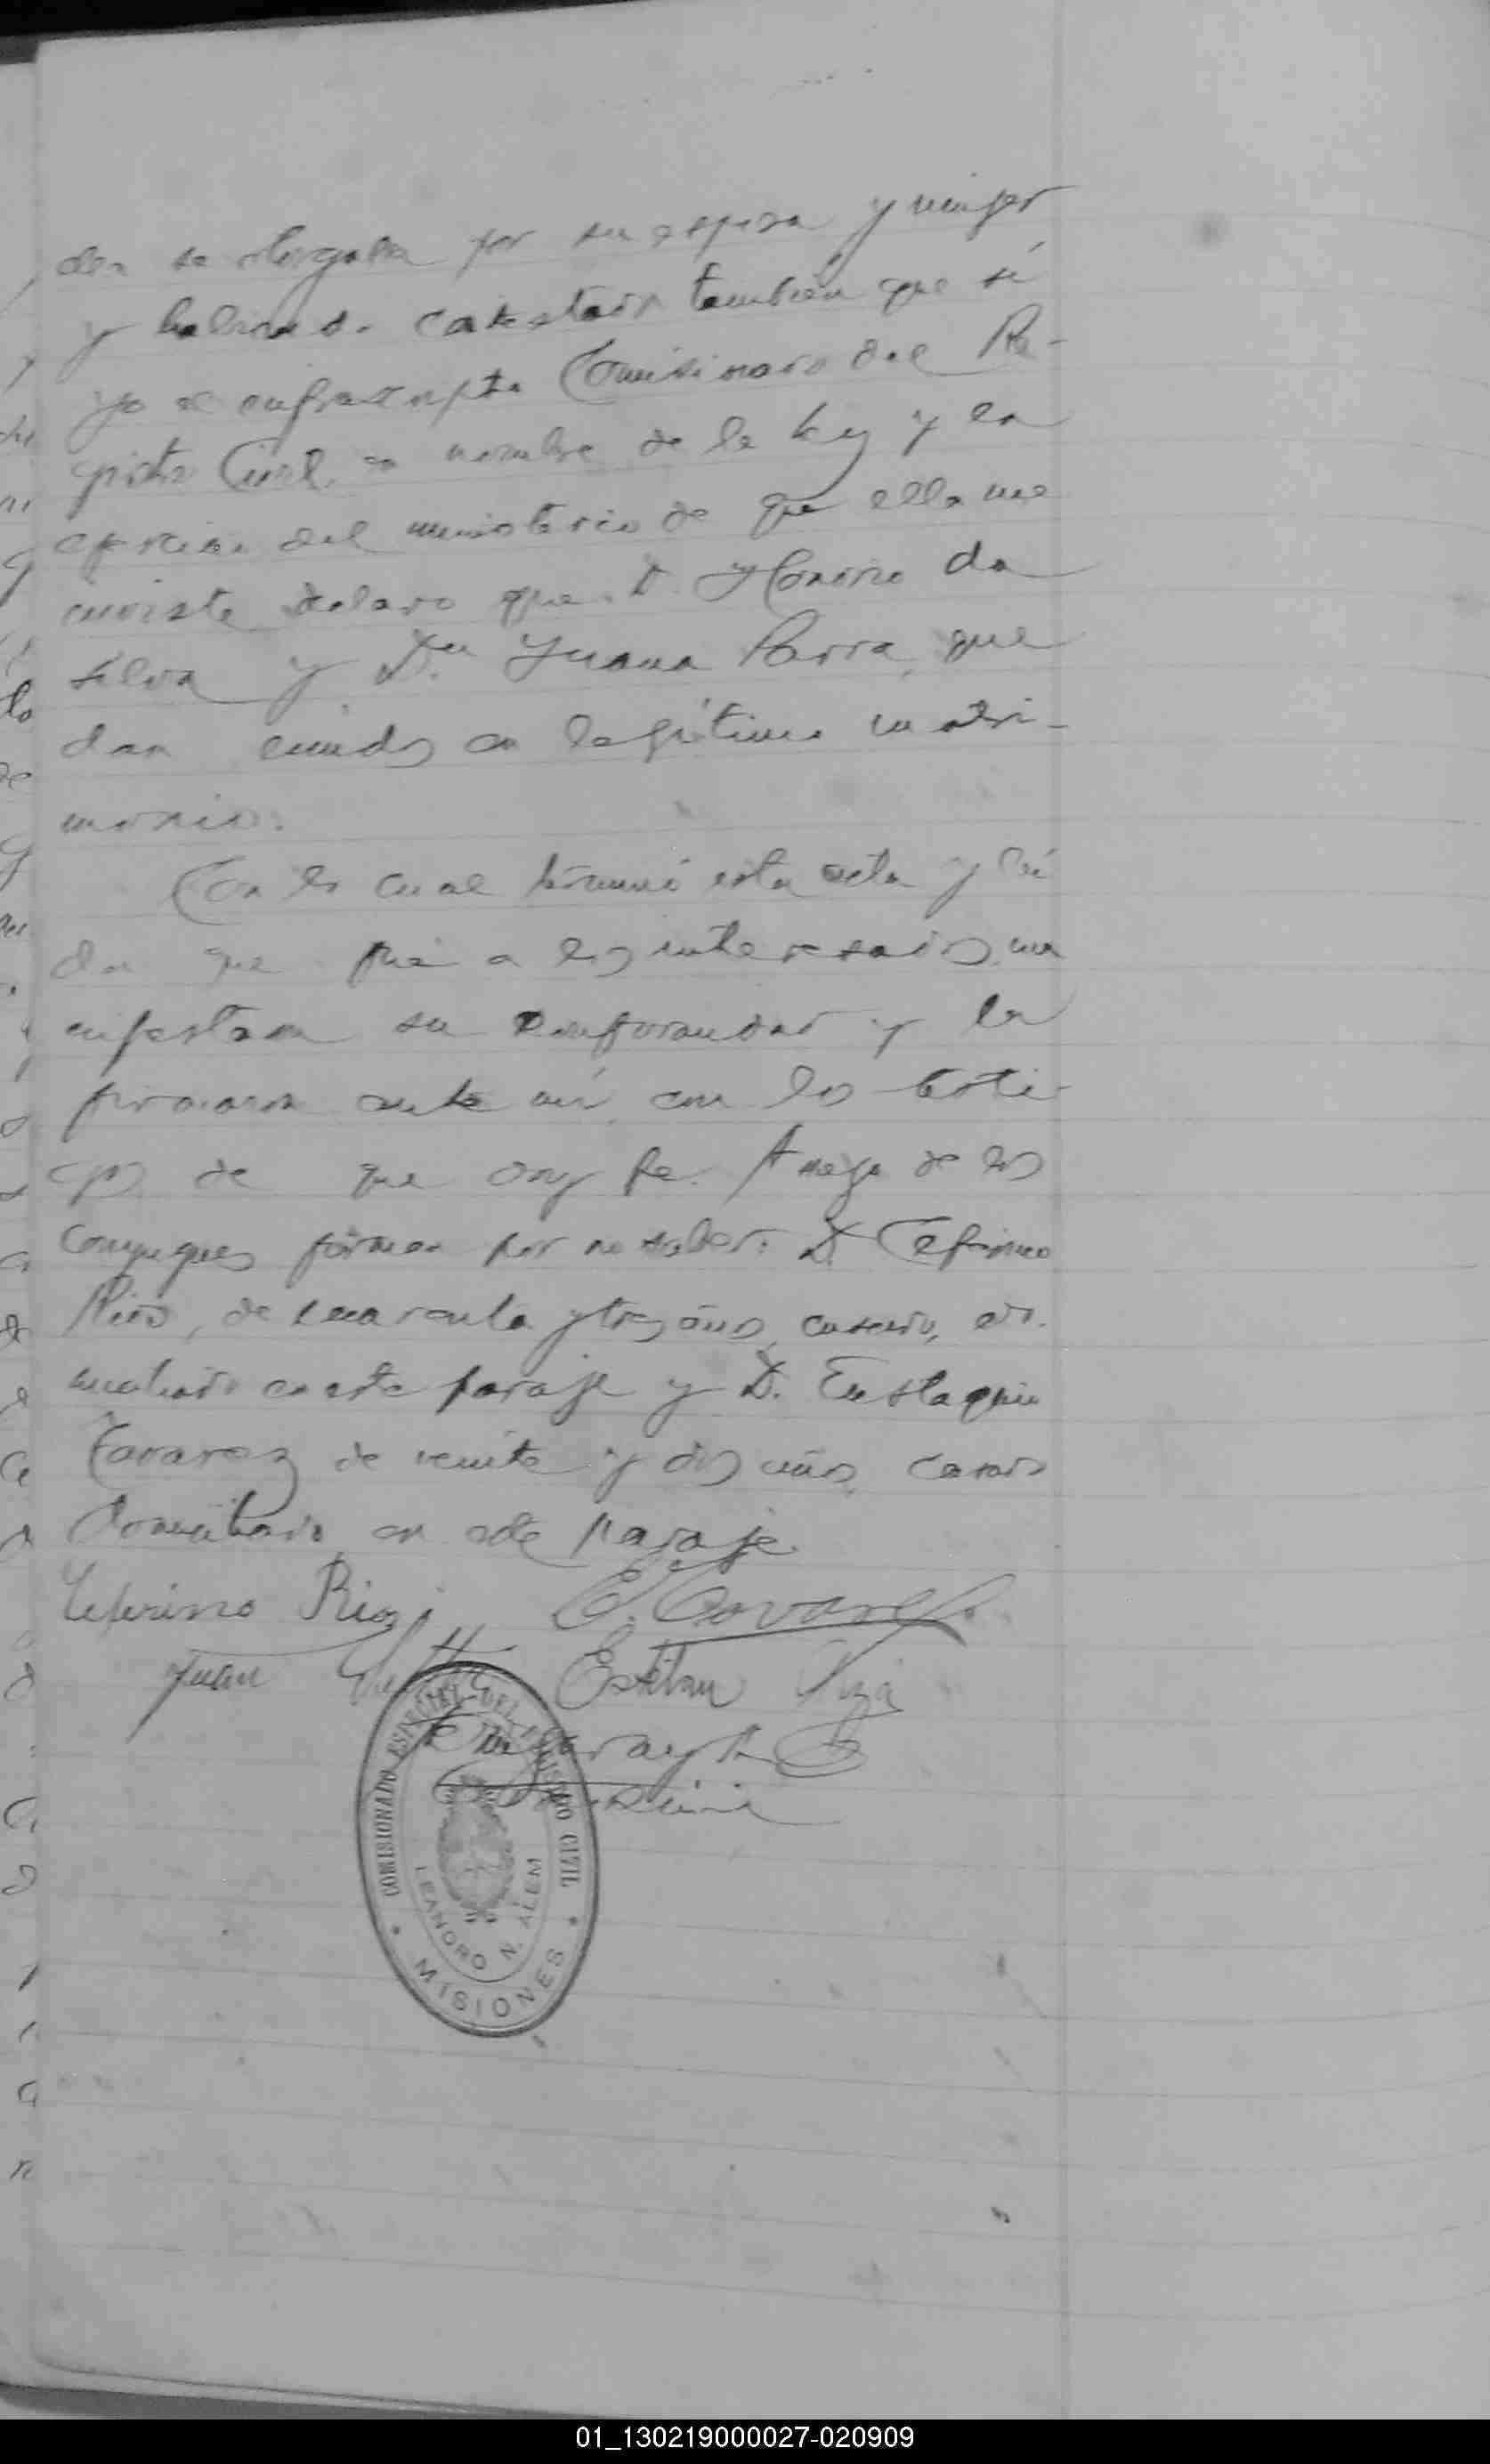 den se otorgaba por su esposa y mujer
y habiendo contestado también que sí
yo el infrascripto Comisionado del Re-
gistro Civil, en nombre de la ley y en
ejercicio del ministerio de que ella me
inviste declaro que D. Honorio da
Silva y Dña Juana Parra, que
dan unidos en legítimo matri-
monio.
Con lo cual terminó esta acta y leí
da que fué a los interesados, ma
nifestaron su conformidad y la
firmaron ante mí, con los testi-
gos de que doy fe. A ruego de los
conyugues firman por no saber: D. Ceferino
Rios, de cuarenta y tres años, casado, do
miciliado en este paraje y D. Eustaquio
Tavarez de veinte y dos años, casado
domiciliado en este paraje.
Ceferino Rios E. Tavarez
Juan Esteban
COMISIONADO ESPECIAL DEL REGISTRO CIVIL
LEANDRO N. ALEM
* MISIONES *
01_130219000027-020909